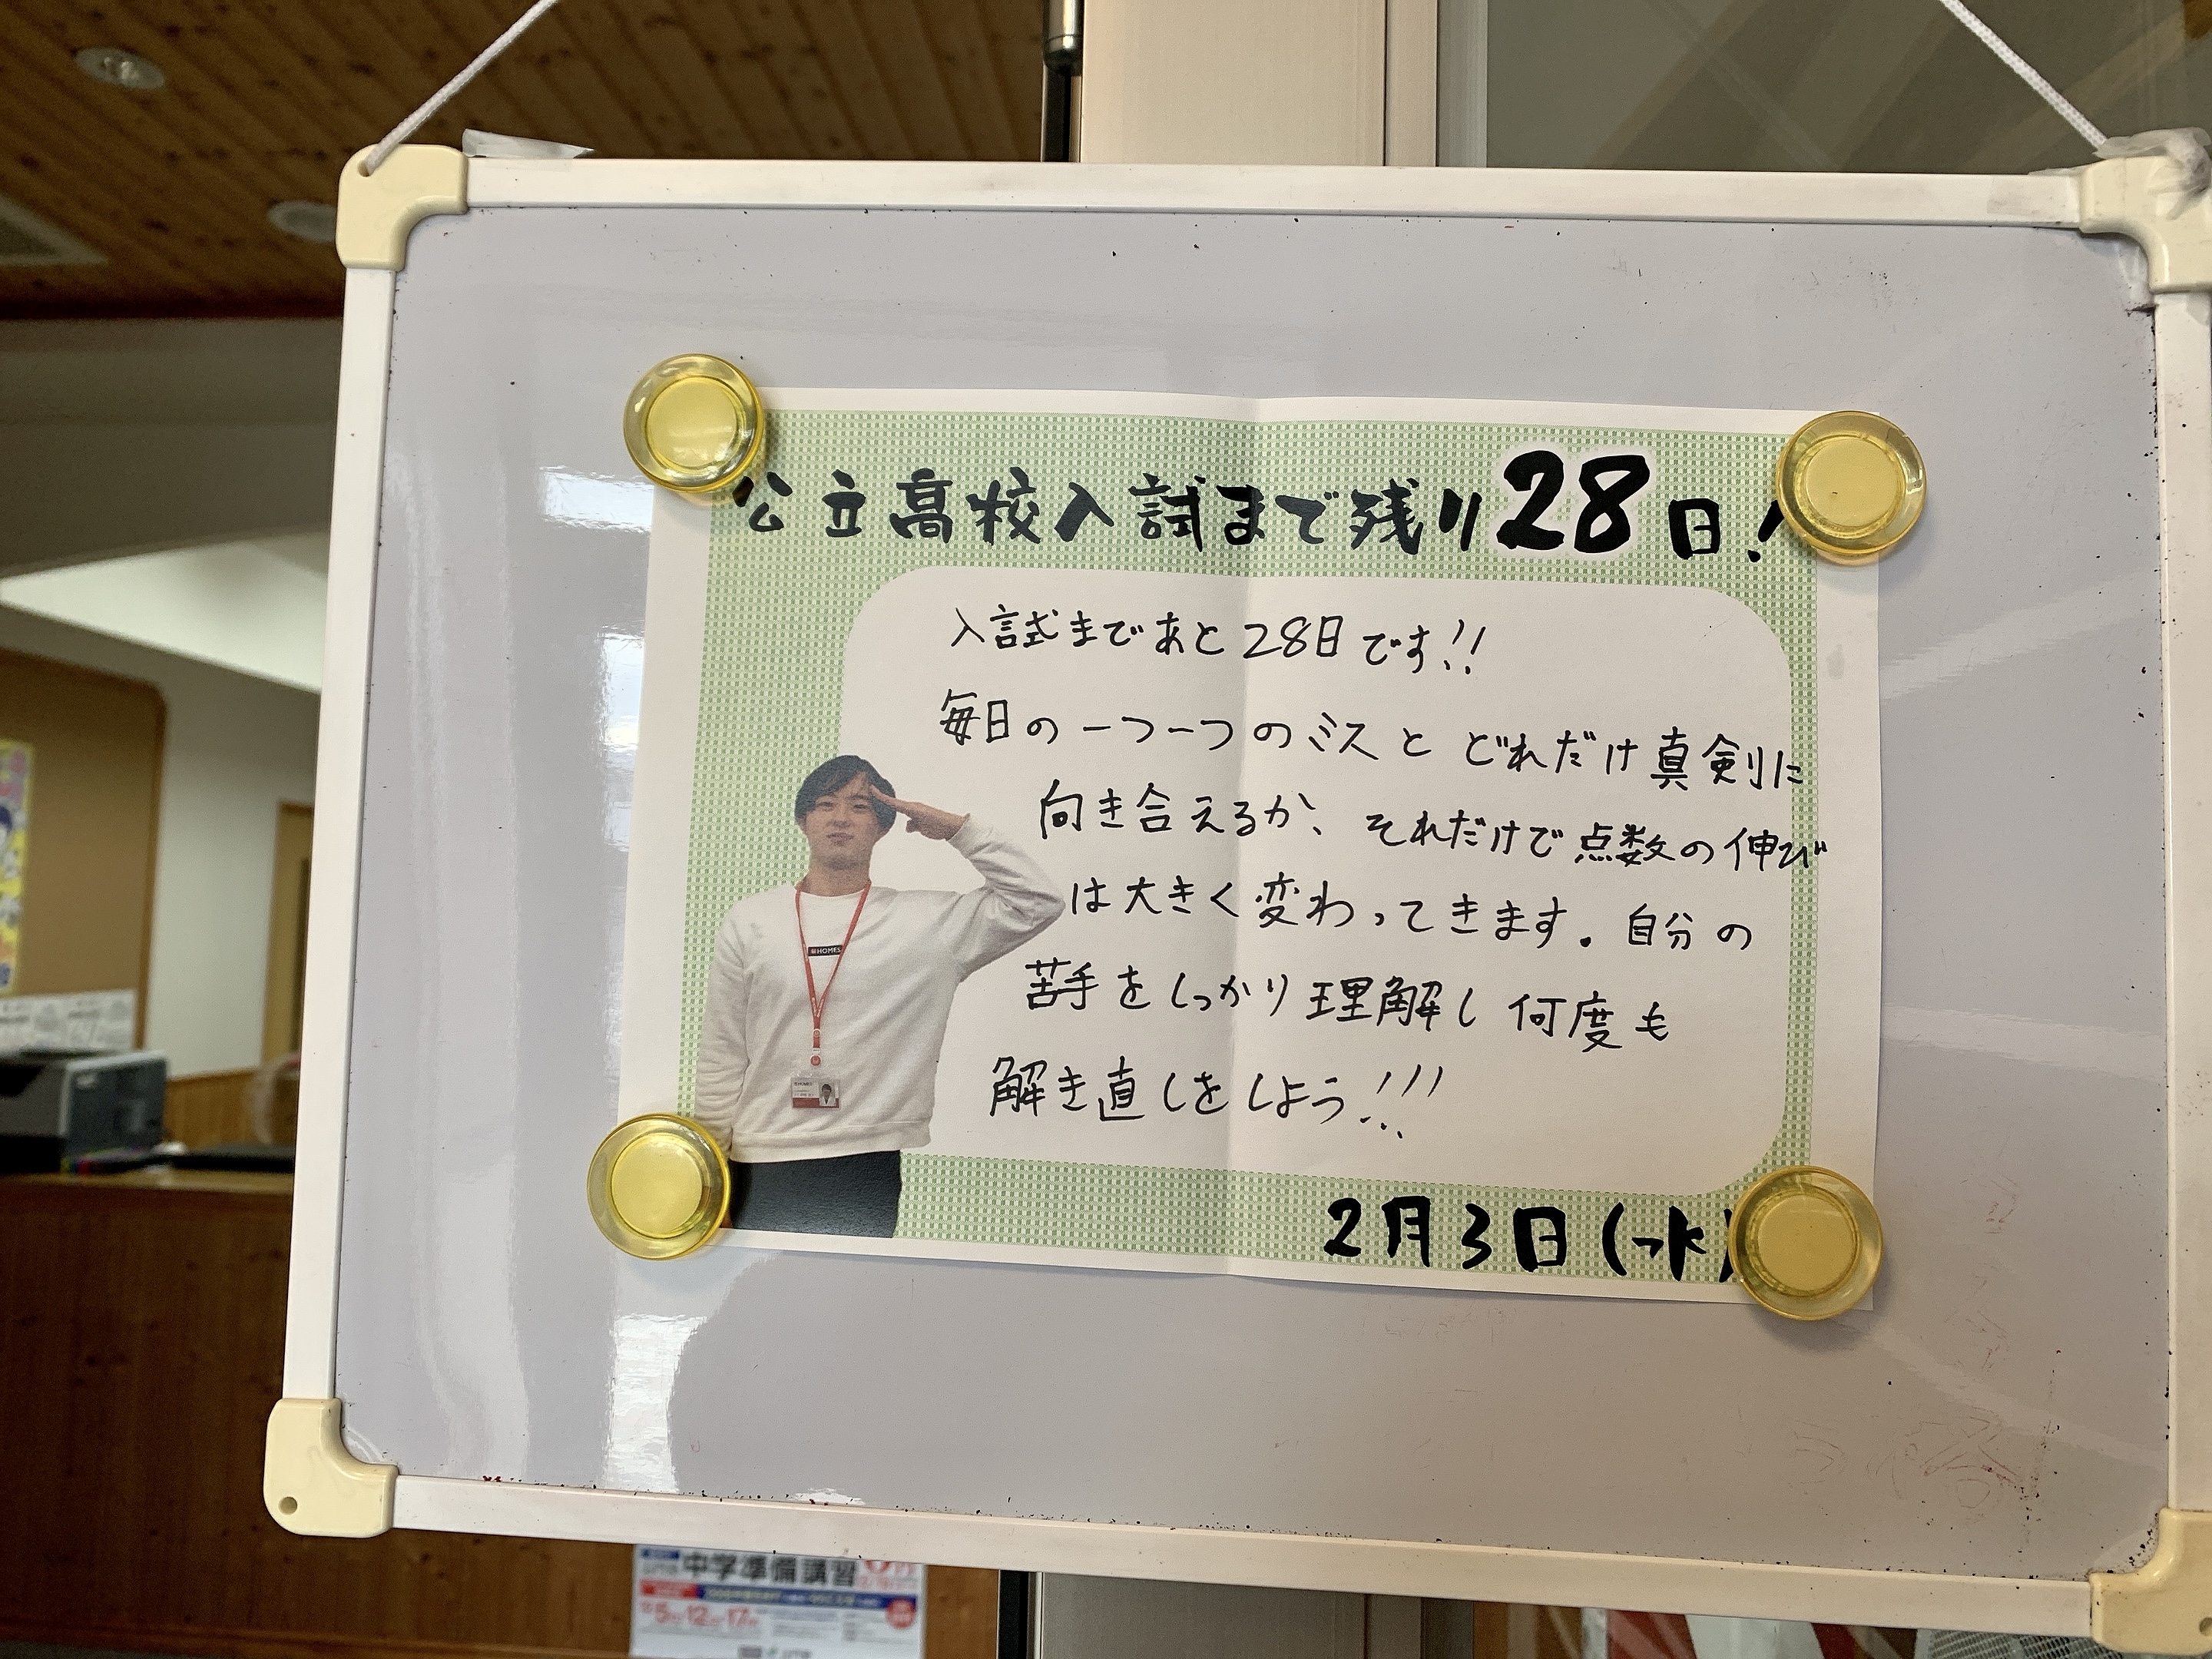 公立高校入試まで残り28日!
入試まであと28日です!!
毎日の一つ一つのミスとどれだけ真剣に
向き合えるか、それだけで点数の伸び
は大きく変わってきます。自分の
苦手をしっかり理解し何度も
解き直しをしよう!!!
HOMES
2月3日(水)
中学準備講習